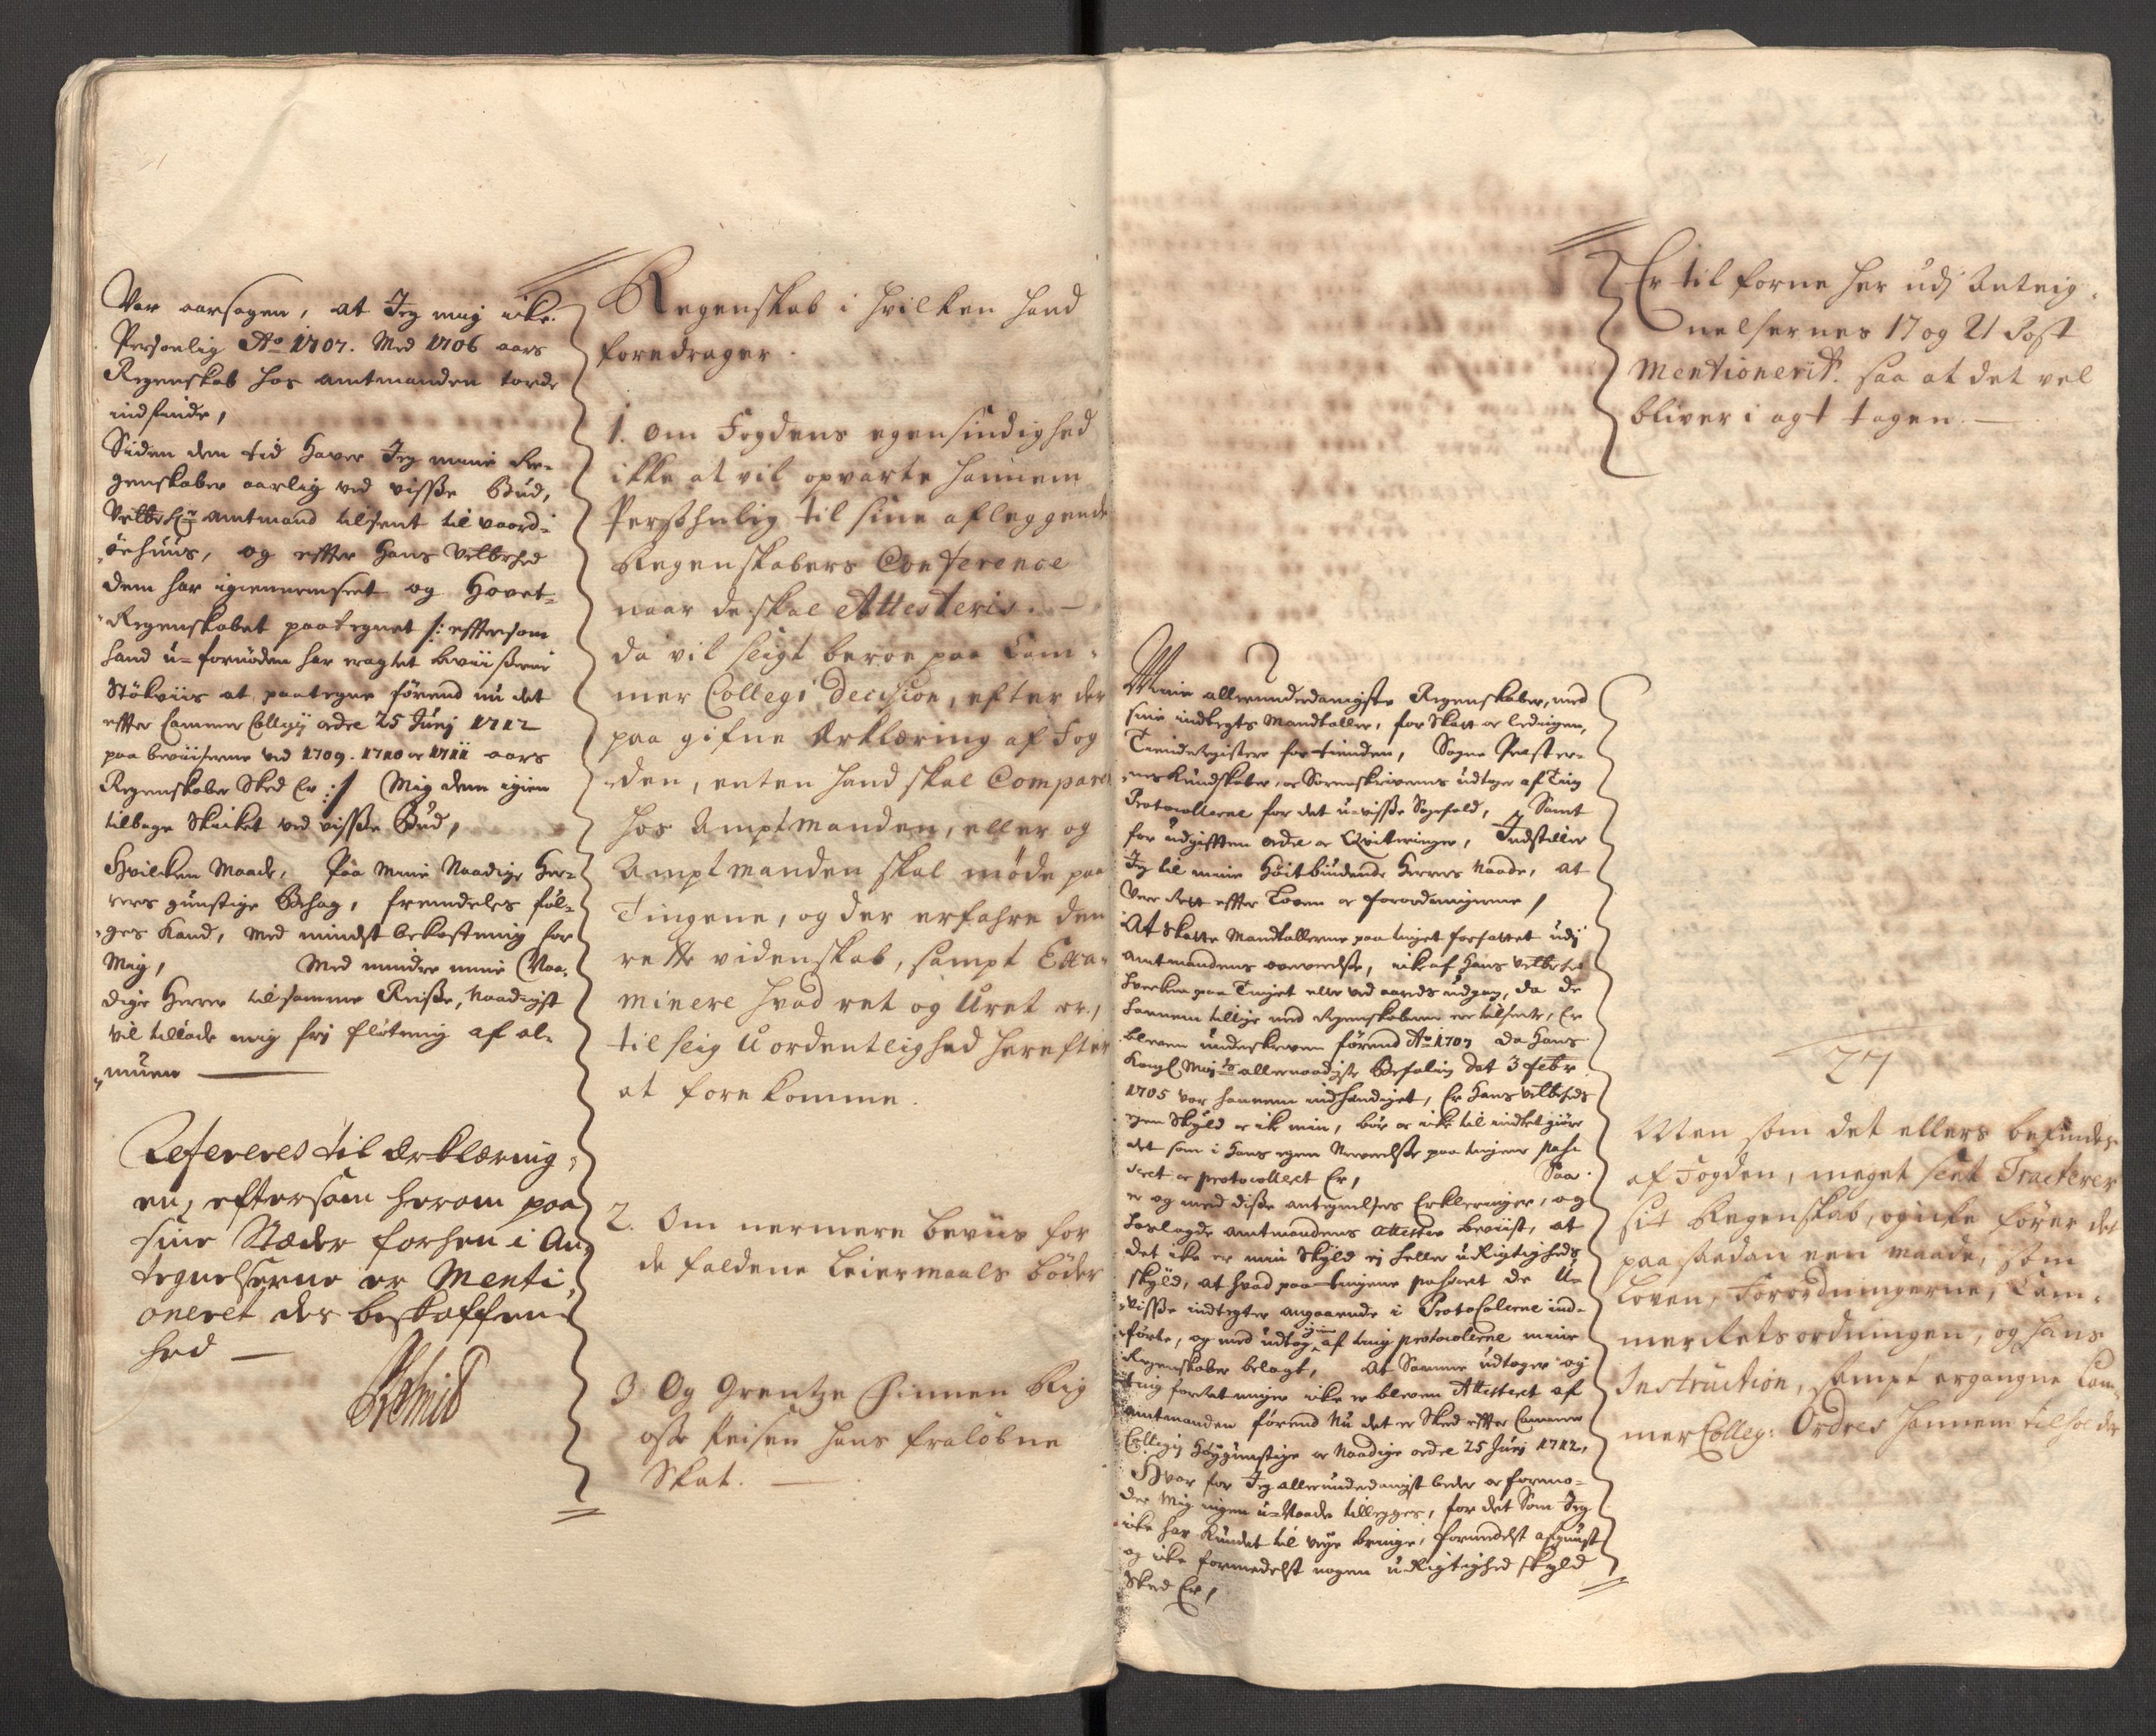 War aarsagen, at Jeg mig icke
Personlig Ao 1707. Med 1706 aars
Regenskab hos amtmanden torde
indfinde,
Siden dem tid haver Jeg mine Re-
genskaber aarlig ved visse Bud,
Velbr Hr amtmand tilsent til vaard-
öehuus, og efter Hans Velbrhed
dem har igiennemseet og Hovet-
Regenskabet paategnet /: eftersom
hand u-fornöden har eragtet beviiserne
Stökviis at paategne förend nu det
efter Cammer Collegij ordre 25 Junj 1712
paa beviiserne ved 1709. 1710 oc 1711 aars
Regenskaber Sked Er :/ Mig dem igien
tilbage Skicket ved visse Bud,
Hvilken Maade, Paa Mine Naadige Her-
rers gunstige Behag, fremdeles föl-
ges kand, med mindst bekostning for
Mig, Med mindre mine Naa-
dige Herrer til samme Reise, Naadigst
vil tillade mig frj flötning af al-
muen
Refereres til Erklæring-
en, eftersom herom paa
sine Stæder forhen i An
tegnelserne er Menti-
oneret des beskaffen-
hed
Regenskab i hvilken hand
foredrager.
1. Om Fogdens egensindighed
ikke at vil opvarte hannem
Persohnlig til sine afleggende
Regenskabers Conference
naar de skal Attesteris.
da vil sligt beroe paa Cam-
mer Collegi Decision, efter der
paa gifne Erklæring af Fog
den, enten hand skal Compare
hos Amptmanden, eller og
Amptmanden skal möde paa
Tingene, og der erfahre den
rette videnskab, sampt Exa-
minere hvad ret og Uret er,
til slig Uordentlighed herefter
at forekomme.
2. Om nermere beviis for
de faldene Leiermaals böder
3 Og Grentze Finnen Rig
Skat.
Er tilforne her udj Anteig-
nelsernes 17 og 21 Post
Mentionerit. saa at det vel
bliver i agt tagen.
Mine allerunderdanigste Regenskaber, med
sine indtegts Mandtaller, for Skatt oc ledingen,
Tiendregister for tienden, Sogne Præster-
nes kundskaber, oc Sorenskriverens udtoge af Ting
Protocollerne for det u-visse Sagefald, Samt
for udgifften ordre oc Qviteringer, Indstiller
Jeg til mine Höitbiudende Herrers Naade, at
Vere Rett efter Loven oc forordningerne,
At Skatte Mandtallerne paa tinget forfattet udj
amtmandens overværelse, icke af Hans Velbrhed
hverken paa Tinget eller ved aarids udgang, da de
hannem tillige med Regenskaberne ere tilsente, Er
bleven underskreven förend Ao 1707 da Hans
Kongl May:ts allernaadigste Befaling dat 3 febr.
1705 var hannem indhendiget, Er Hans Velbrheds
egen Skyld oc ik min, bör oc icke til undtgiöre
det som i Hans egen Nærværelse paa tingene pasce
rect oc protocollert Er, Saa
er og med disse antegnelsers Erkleringer, og
hoslagde amtmandens Attester beviist, at
det ike er min Skyld ej heller uRigtigheds
skyld, at hvad paa tingene passeret de U-
visse indtegter angaaende i Protocolerne ind-
förte, og med udtog igien af ting protocolerne mine
Regenskaber belagt, At Samme udtoger og
amtmanden förend Nu det er Sked efter Cammer
Collegij Höygunstige oc Naadige ordre 25 Junj 1712,
Hvor for Jeg allerunderdanigst beder oc formo-
der Mig ingen u-Naade tillegges, for det Som Jeg
icke har kundet til veye bringe, formedelst afgunst
og icke formedelst nogen uRigtighed skyld
Sked Er,
27
Men som det ellers befindes
af Fogden, meget sent Tracterer
sit Regenskab, og icke förer det
paa saadan een maade, som
Loven, Forordningerne, Cam-
merretsordningen, og hans
Instruction, sampt ergangne Cam-
mer Colleg: Ordres hannem tilholder